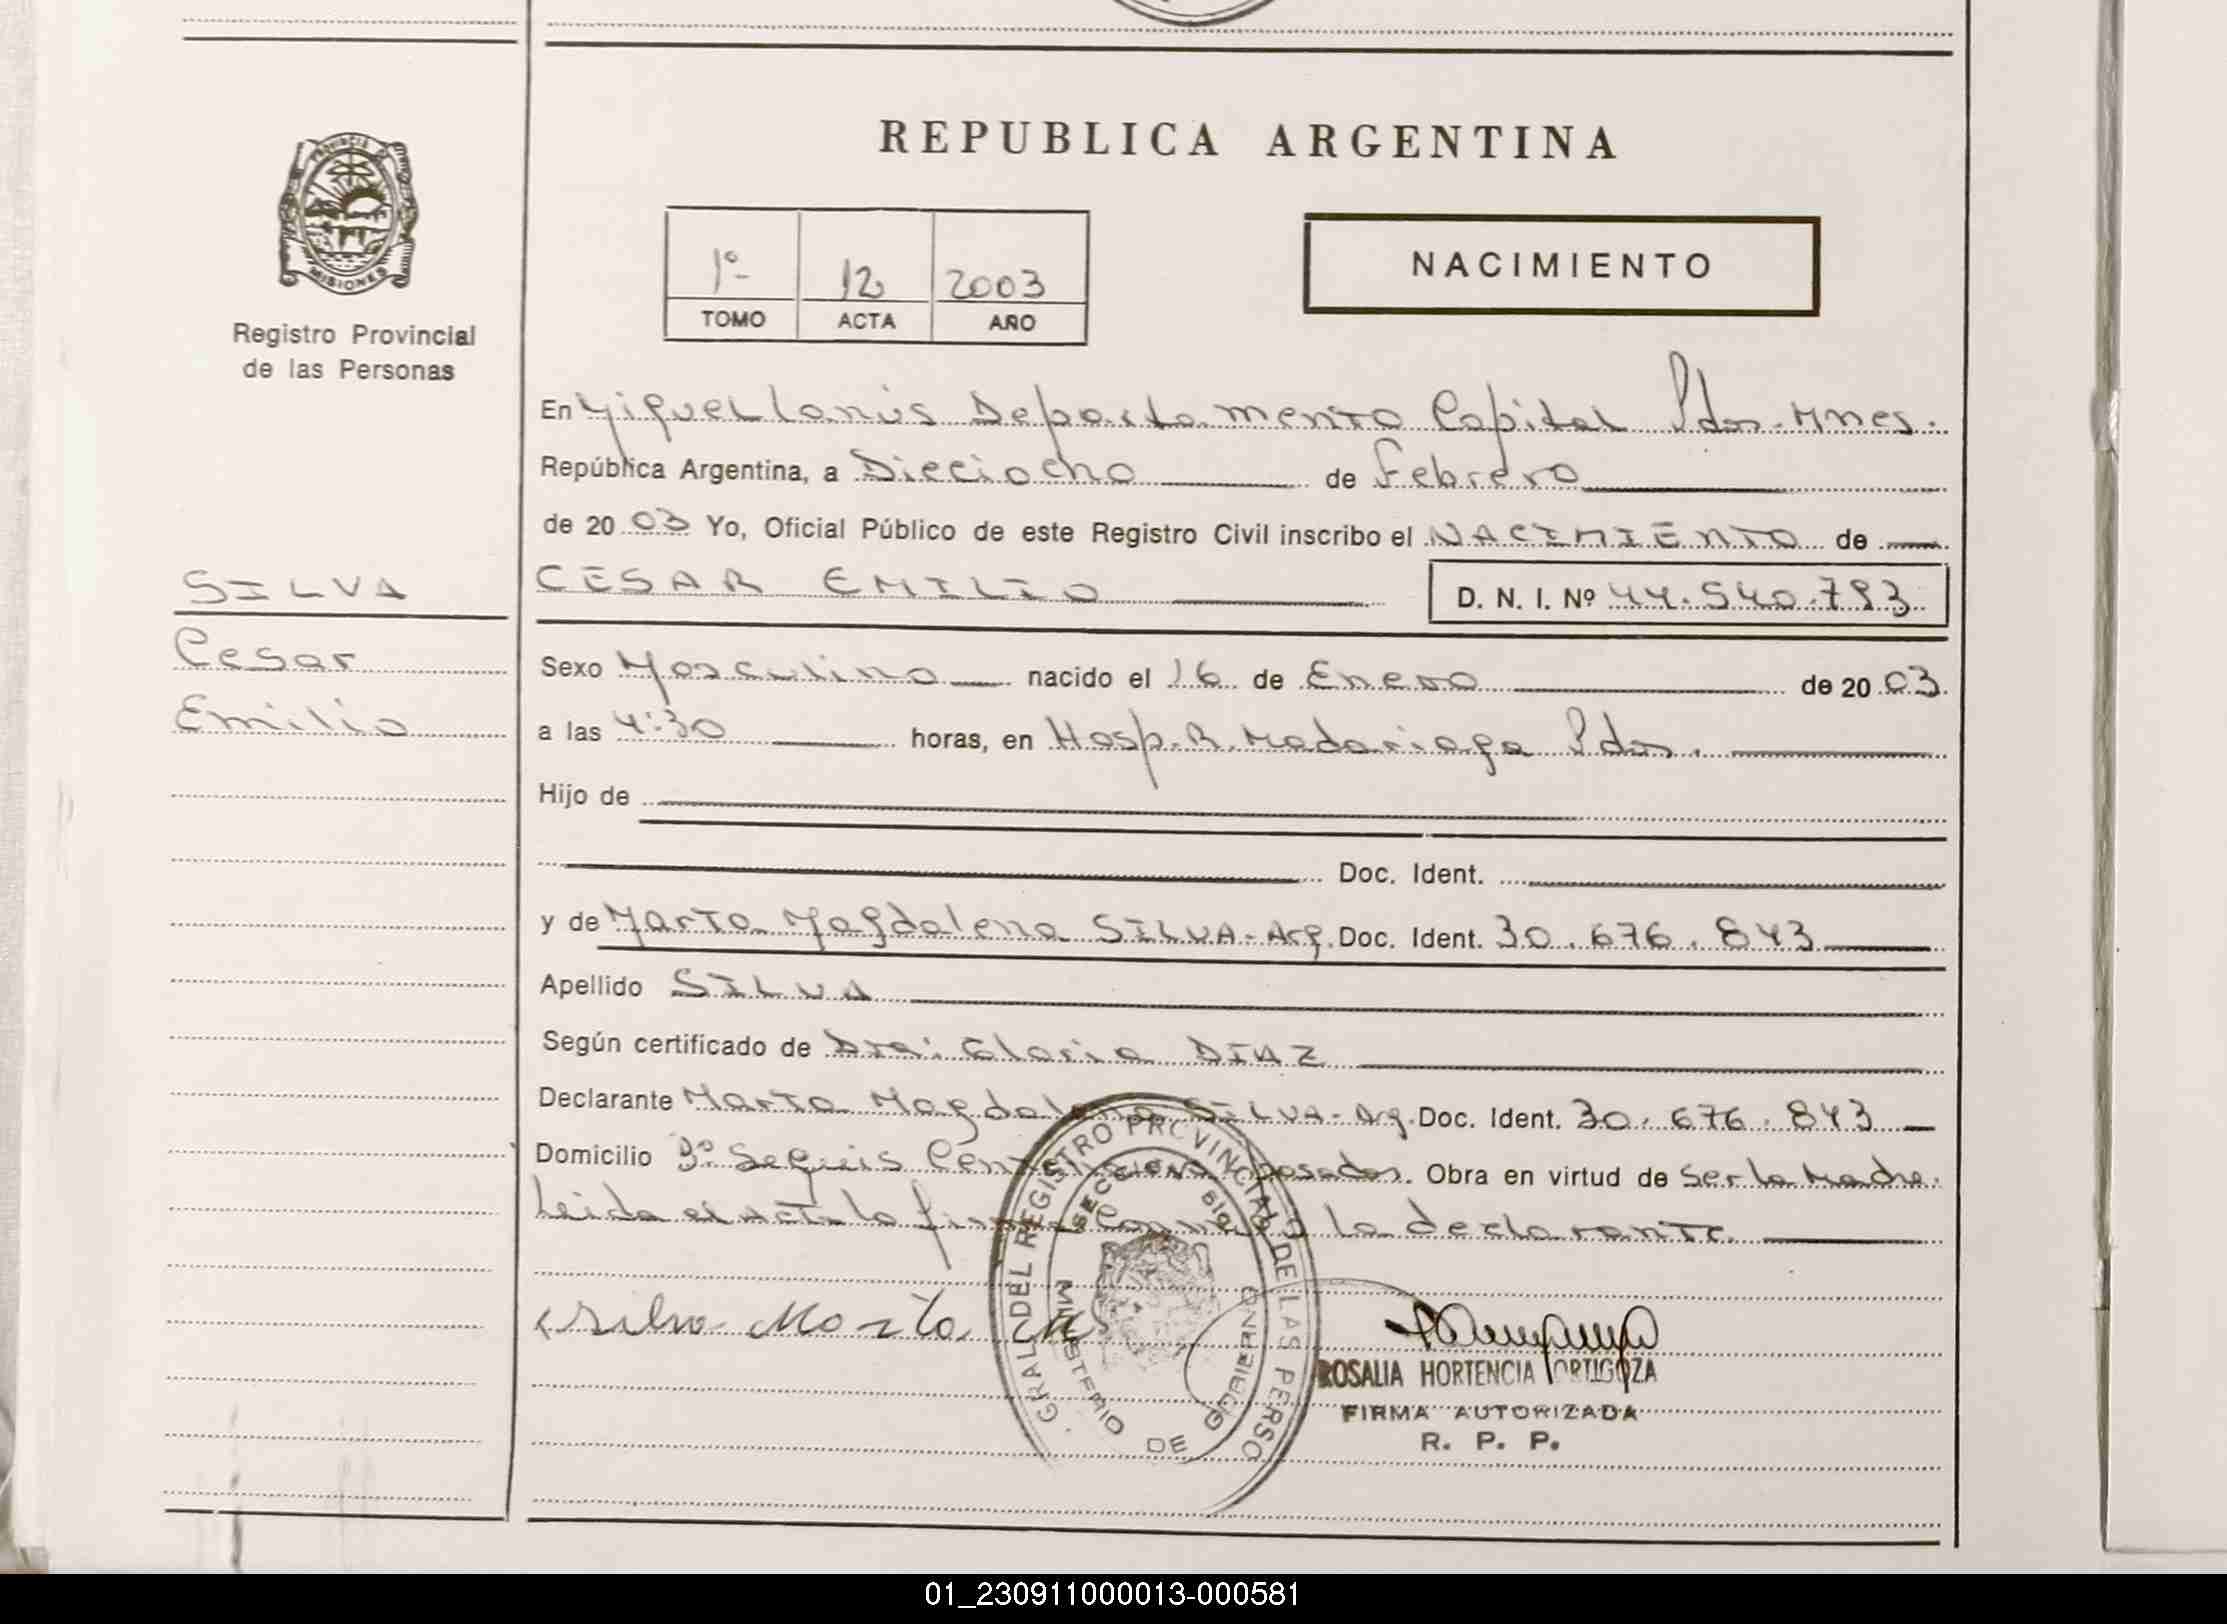 REPUBLICA ARGENTINA
PROVINCIA DE
MISIONES
Registro Provincial
de las Personas
1º 12 2003
TOMO ACTA AÑO
NACIMIENTO
En Miguel Lanús Departamento Capital Pdas. Mnes.
República Argentina, a Dieciocho de Febrero
de 2003 Yo, Oficial Público de este Registro Civil inscribo el NACIMIENTO de
SILVA
Cesar
Emilio
CESAR EMILIO D. N. I. Nº 44.540.793
Sexo Masculino nacido el 16 de Enero de 2003
a las 4:30 horas, en Hosp. R. Madariaga Pdas.
Hijo de
Doc. Ident.
y de Marta Magdalena SILVA - Arg. Doc. Ident. 30.676.843
Apellido SILVA
Según certificado de Dra. Gloria DIAZ
Declarante Marta Magdalena SILVA - Arg. Doc. Ident. 30.676.843
Domicilio posadas. Obra en virtud de Ser la Madre.
Leida el Acta la firma la declarante
Silva Marta
GRAL. DEL REGISTRO PROVINCIAL DE LAS PERSO
SECCION
MINISTERIO DE GOBIERNO
ROSALIA HORTENCIA ORTIGOZA
FIRMA AUTORIZADA
R. P. P.
01_230911000013-000581